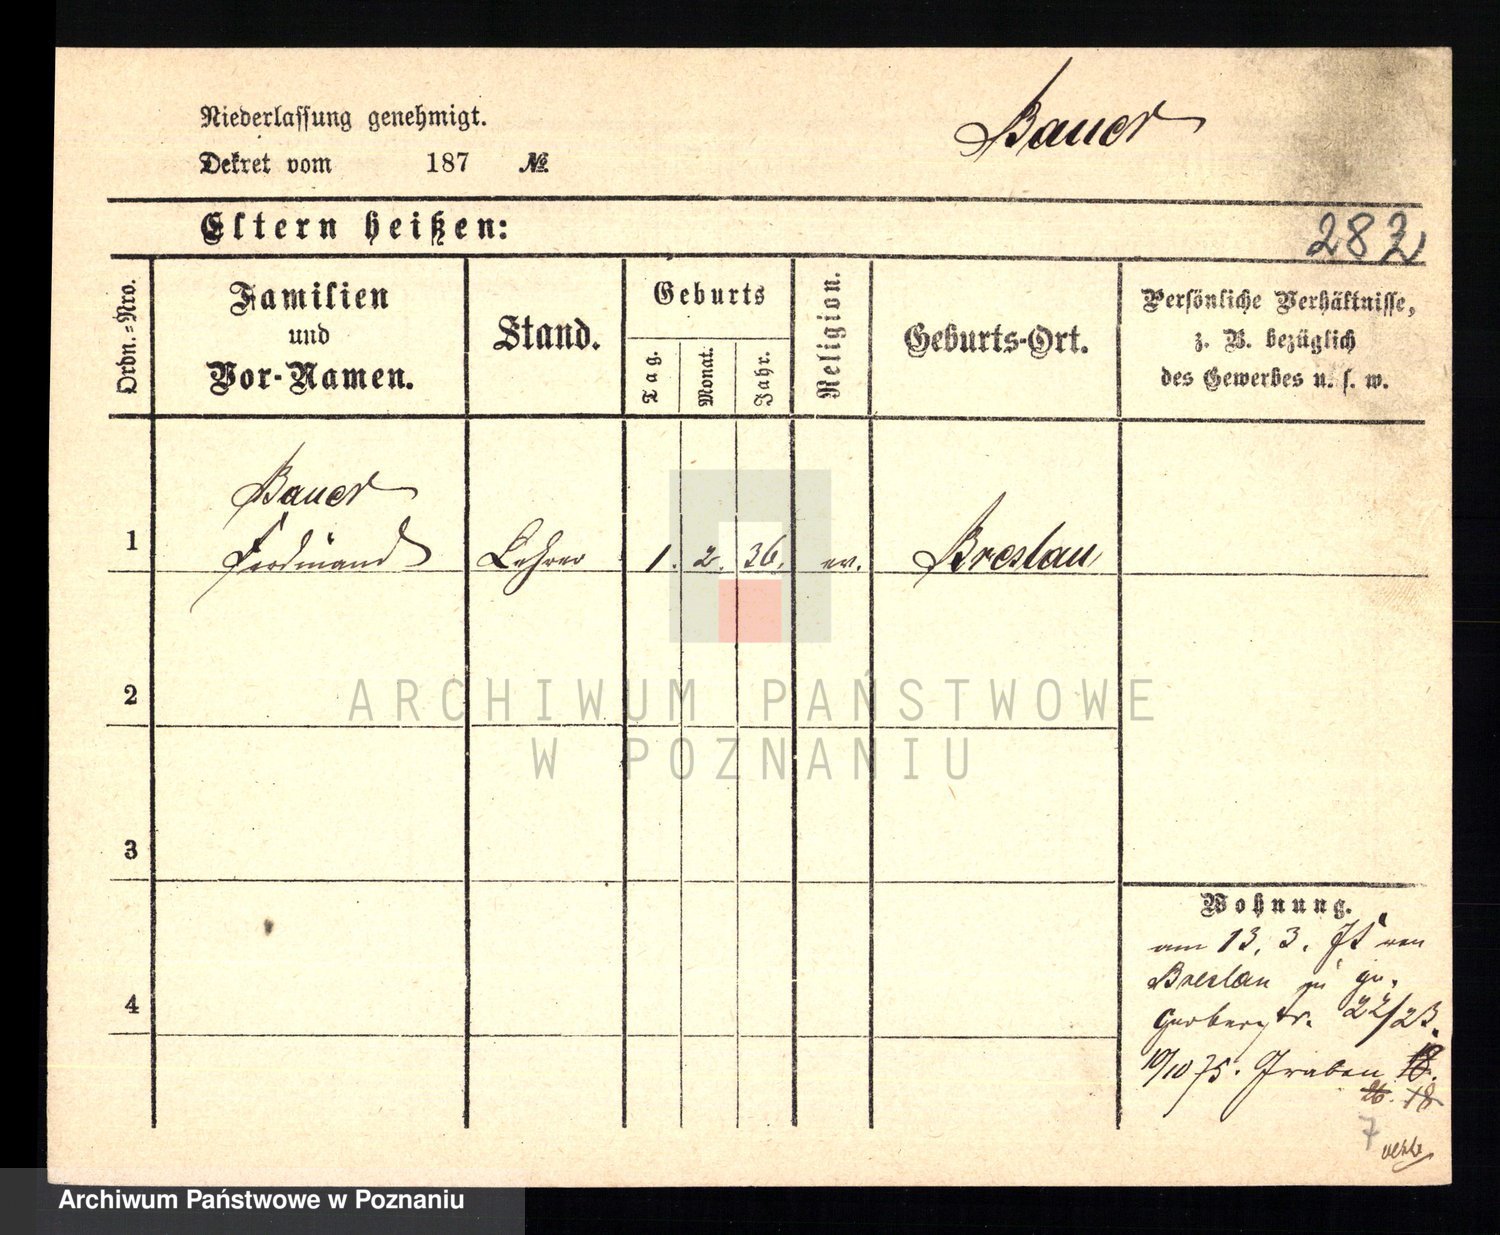 Niederlassung genehmigt.
Bauer
Dekret vom 187 №
Eltern heißen:
282
Ordn.=Nro.
Familien
und
Vor-Namen.
Stand.
Geburts
Tag.
Monat.
Jahr.
Religion.
Geburts-Ort.
Persönliche Verhältnisse,
z. B. bezüglich
des Gewerbes u. s. w.
Bauer
1 Ferdinand Lehrer 1. 2. 36. ev. Breslau
2
ARCHIWUM PAŃSTWOWE
W POZNANIU
3
Wohnung.
am 13. 3. 75 von
Breslau zu
4
Gerberstr. 22/23.
19/10 75. Graben 18.
26. 18
7
Archiwum Państwowe w Poznaniu